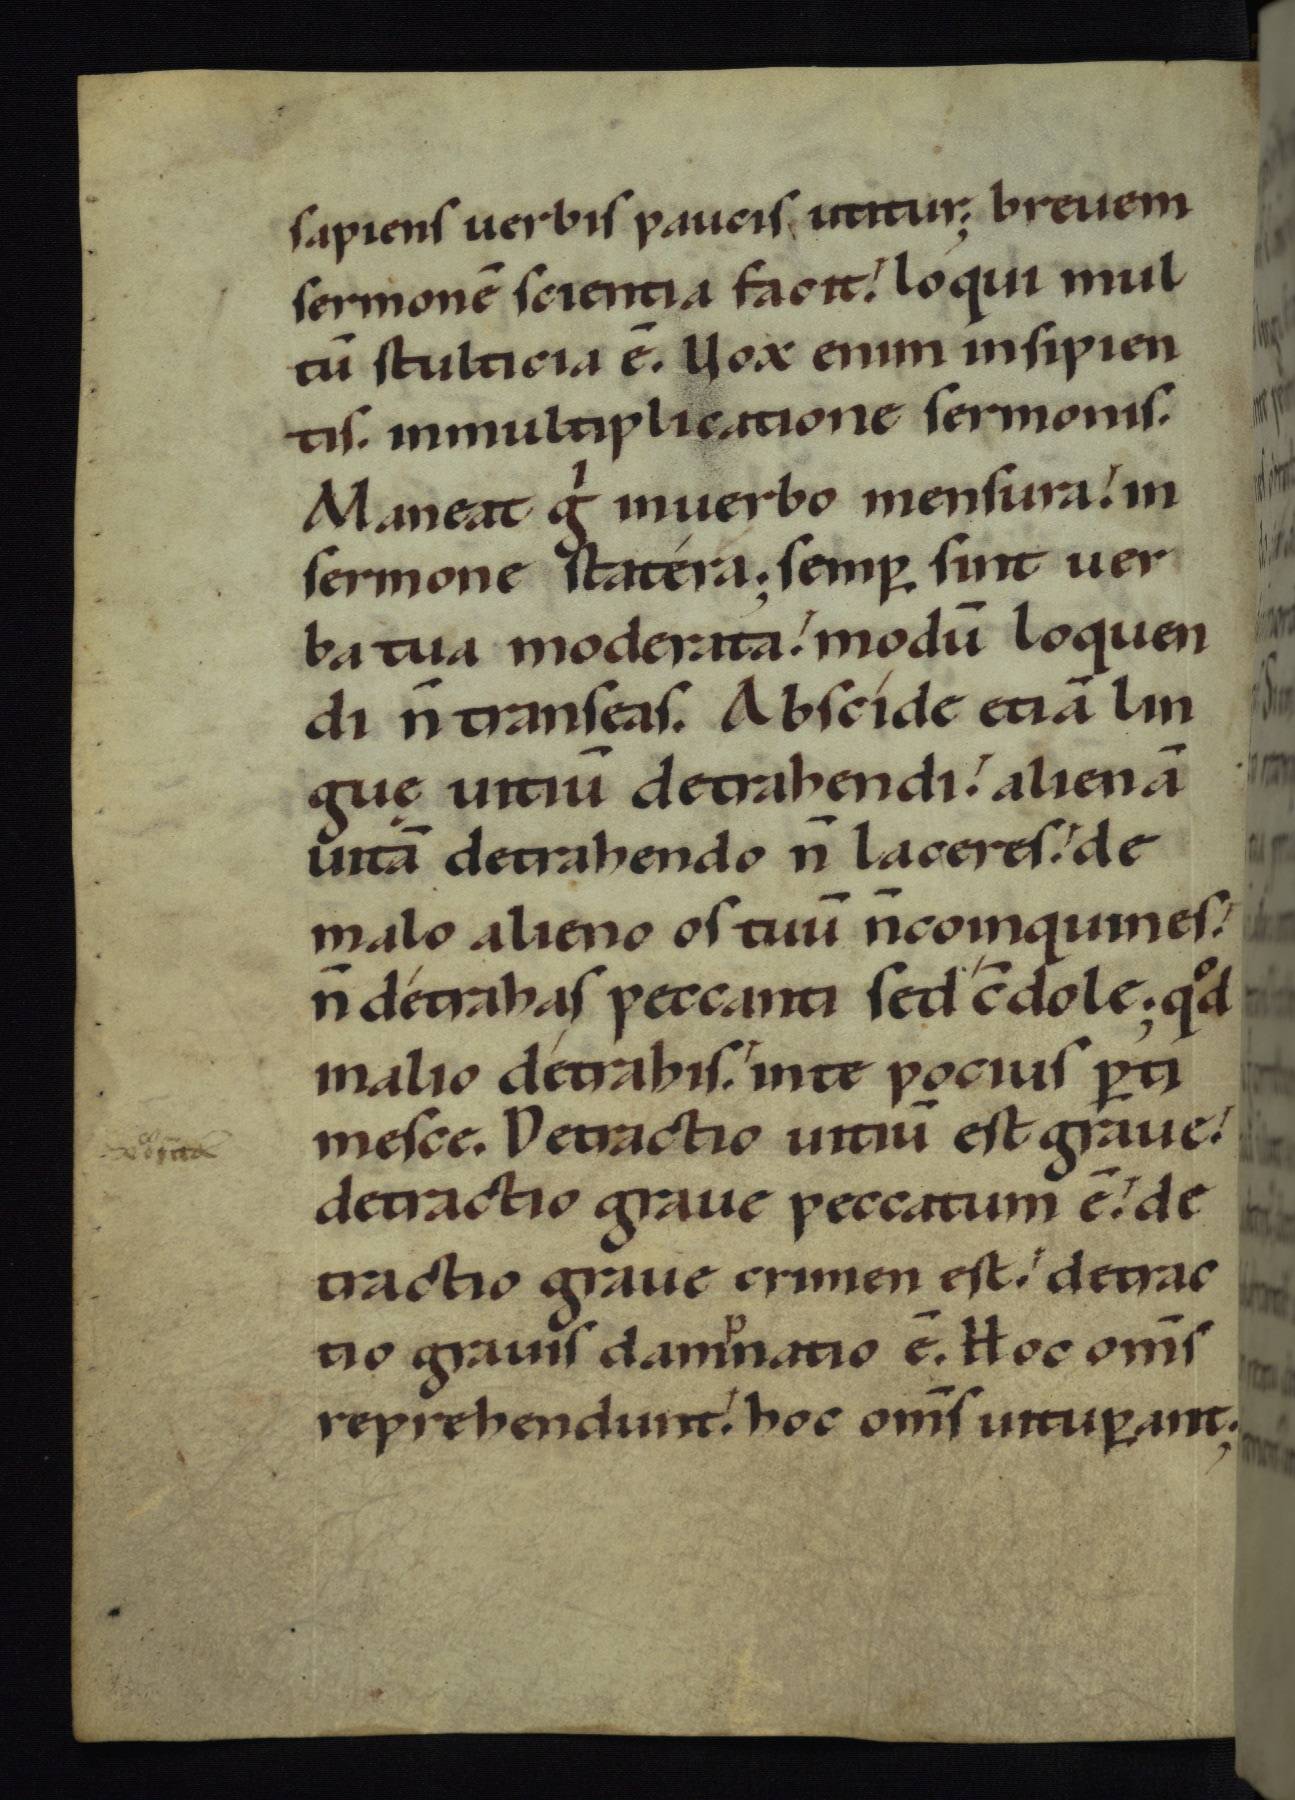 sapiens uerbis paucis utitur; breuem
sermonē scientia facit! loqui mul
tū stulticia ē. Uox enim insipien
tis. inmultiplicatione sermonis.
Maneat gͥ inuerbo mensura! in
sermone statéra; semꝑ sint uer
ba tua moderata! modū loquen
di n̄ transeas. Abscíde etiā lin
guę uitiū detrahendi! alienā
uitā detrahendo n̄ laceres! de
malo alieno os tuū n̄ coinquines!
n̄ détrahas peccanti sed c̄dole; qͦd
inalio détrahis! inte pocius ꝑti
mesce. Detractio uitiū est graue!
detractio graue peccatum ē! de
tractio graue crimen est! detrac
tio grauis damᵖnatio ē. Hoc om̄s
reprehendunt! hoc om̄s uituꝑant;